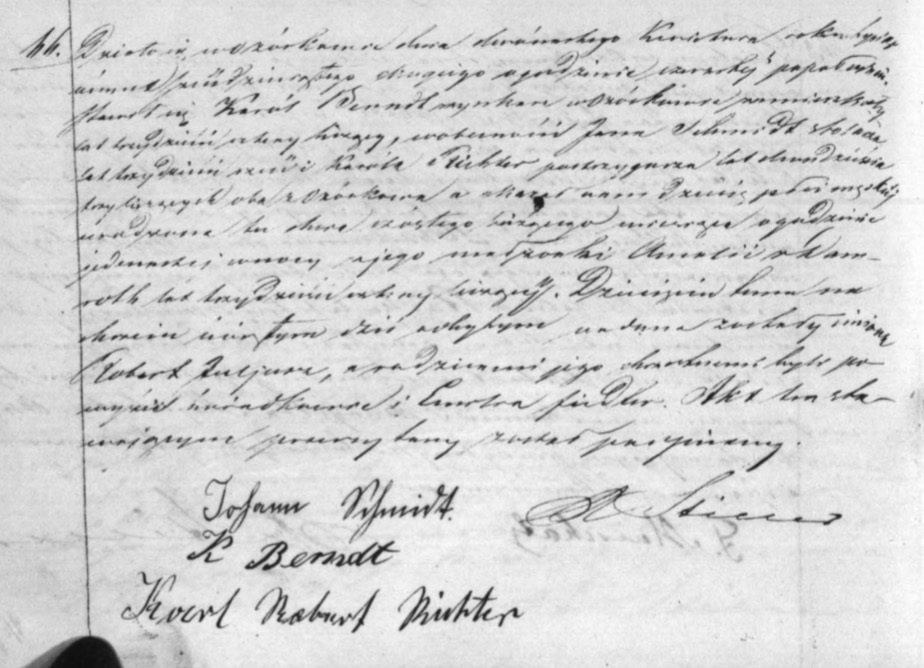 66. Działo się w Ozórkowie dnia dwónastego Kwietnia roku tysiąc
ośmset sześćdziesiątego drugiego o godzinie czwartej po południu
stawił się Karol Berndt mynkarz w Ozórkowie zamieszkały
lat trzydzieści cztery liczący, w obecności Jana Schmidt stolarza
lat trzydzieści sześć i Karola Richter postrzygacza lat dwadzieścia
trzy liczących oba z Ozórkowa a okazał nam dziecię płci męskiej
urodzone tu dnia szóstego bieżącego miesiąca o godzinie
jedenastej w nocy z jego małżonki Amalii z
lat trzydzieści cztery liczącej. Dziecięciu temu na
chrzcie świętym dziś odbytym nadane zostały imiona
Robert Juljusz, a rodzicami jego chrzestnemi byli po-
wyżsi świadkowie i Fiedler. Akt ten sta-
wającym przeczytany został podpisany.
Johann Schmidt.
K Berndt
Karl Robert Richter